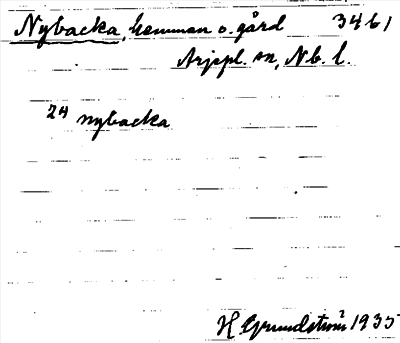 Nybacka, hemman o. gård 3461
Arjepl. sn, Nb. l.
24 nybacka
H Grundström 1935